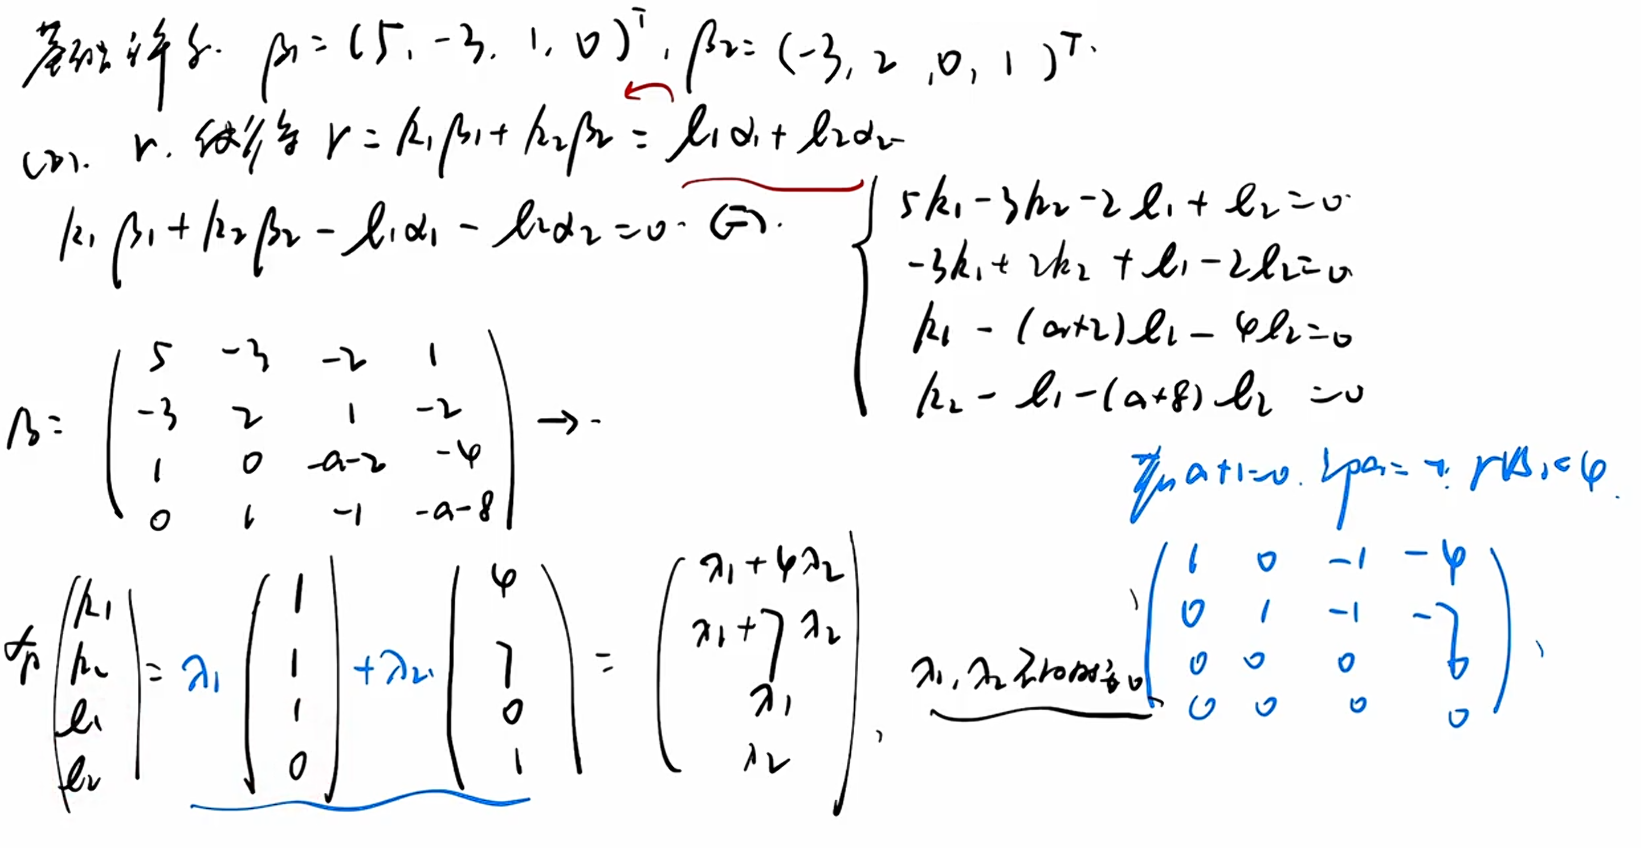 基础解系. β₁=(5,-3,1,0)ᵀ, β₂=(-3,2,0,1)ᵀ.
(2). r. r=k₁β₁+k₂β₂=l₁α₁+l₂α₂
k₁β₁+k₂β₂-l₁α₁-l₂α₂=0.
5k₁-3k₂-2l₁+l₂=0.
-3k₁+2k₂+l₁-2l₂=0
k₁-(a+2)l₁-4l₂=0
k₂-l₁-(a+8)l₂=0
B=
5 -3 -2 1
-3 2 1 -2
1 0 -a-2 -4
0 1 -1 -a-8
→
a+1=0. <4.
1 0 -1 -4
0 1 -1 -7
0 0 0 0
0 0 0 0
k₁ 1 4 λ₁+4λ₂
k₂ = λ₁ 1 +λ₂ 7 = λ₁+7λ₂
l₁ 1 0 λ₁
l₂ 0 1 λ₂
λ₁,λ₂